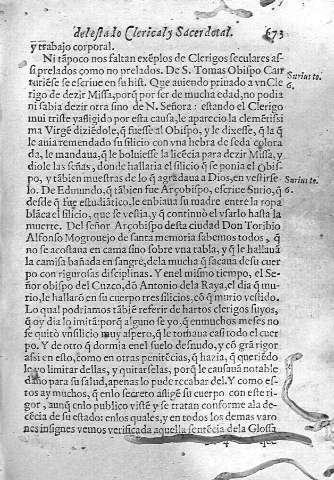 del estado Clerical, y Sacerdotal. 673
y trabajo corporal.
Ni tãpoco nos faltan exẽplos de Clerigos seculares as-
si prelados como no prelados. De S. Tomas Obispo Can-
turiẽse se escriue en su hist. Que auiendo priuado a vn Cle
rigo de dezir Missa, porq̃ por ser de mucha edad, no podia
ni sabia dezir otra sino de N. Señora: estando el Clerigo
mui triste y afligido por esta causa, le aparecio la clemẽtissi
ma Virgẽ diziẽdole, q̃ fuesse al Obispo, y le dixesse, q̃ la q̃
le auia remendado su silicio con vna hebra de seda colora
da, le mandaua, q̃ le boluiesse la licẽcia para dezir Missa, y
diole las señas, donde hallaria el silicio q̃ se ponia el obis-
po, y tãbien muestras de lo q̃ agradaua a Dios, en vestirse
lo. De Edmundo, q̃ tãbien fue Arçobispo, escriue Surio, q̃
desde q̃ fue estudiãte, le enbiaua su madre entre la ropa
blãca el silicio, que se vestia, y q̃ continuò el vsarlo hasta la
muerte. Del señor Arçobispo desta ciudad Don Toribio
Alfonso Mogronejo de santa memoria sabemos todos, q̃
no se acostaua en cama sino sobre vna tabla, y q̃ le hallauã
la camisa bañada en sangre, de la mucha q̃ sacaua de su cuer
po con rigurosas disciplinas. Y en el mismo tiempo, el Se-
ñor obispo del Cuzco, dõ Antonio de la Raya, el dia q̃ mu-
rio, le hallarõ en su cuerpo tres silicios, cõ q̃ murio vestido.
Lo qual podriamos tãbiẽ referir de hartos clerigos suyos,
q̃ oy dia lo imitã: porq̃ alguno se yo, q̃ en muchos meses no
se quitò vn silicio muy aspero, q̃ le tomaua casi todo el cuer
po. Y de otro q̃ dormia en el suelo desnudo, y cõ grã rigor
assi en esto, como en otras penitẽcias, q̃ hazia, q̃ queriẽdo-
le yo limitar dellas, y quitarselas, porq̃ le causauã notable
daño para su salud, apenas lo pude recabar del. Y como es-
tos ay muchos, q̃ en lo secreto afligẽ su cuerpo con este ri-
gor, aunq̃ en lo publico vistẽ y se tratan conforme a la de-
cẽcia de su estado: en los quales, y en todos los demas varo
nes insignes vemos verificada aquella sentẽcia de la Glossa
Surius to.
6.
Surius to.
6.